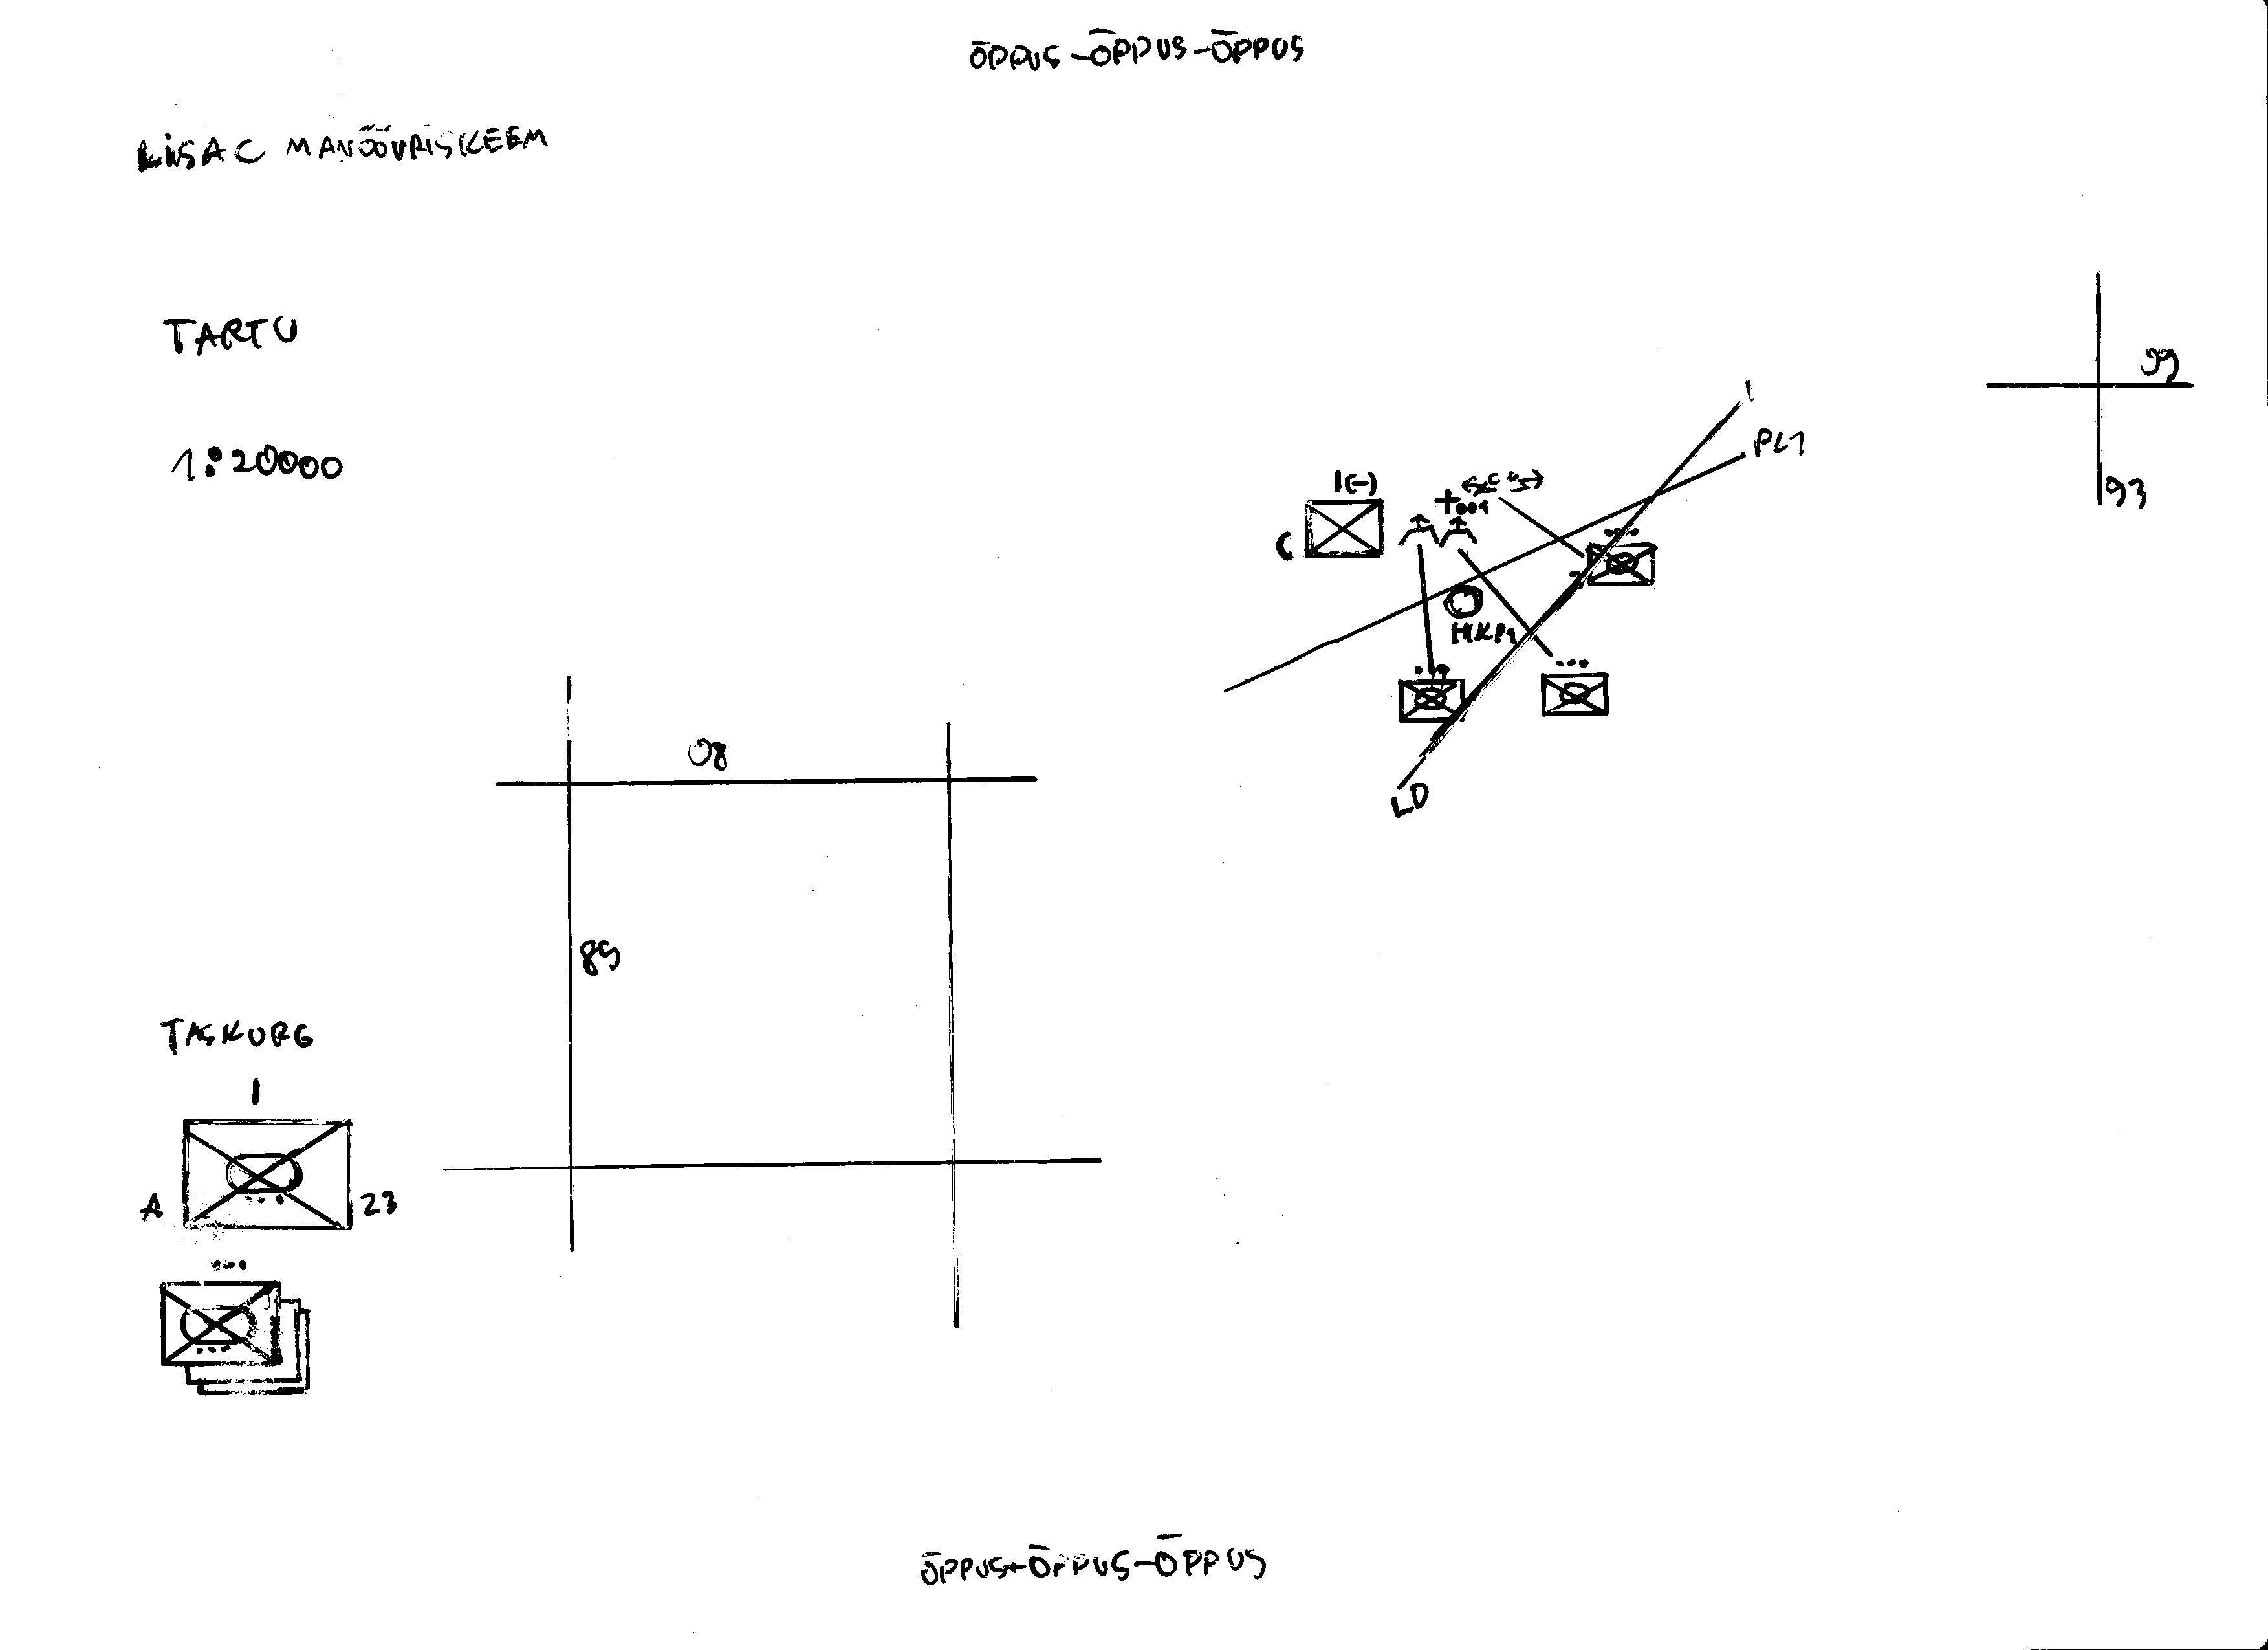 ÕPPUS-ÕPPUS-ÕPPUS
LISA C MANÖÖVRISKEEM
TARTU
1:20000
09
93
PL1
I(-)
+001
C
HKP1
LD
08
89
TASKORG
I
A
23
ÕPPUS-ÕPPUS-ÕPPUS